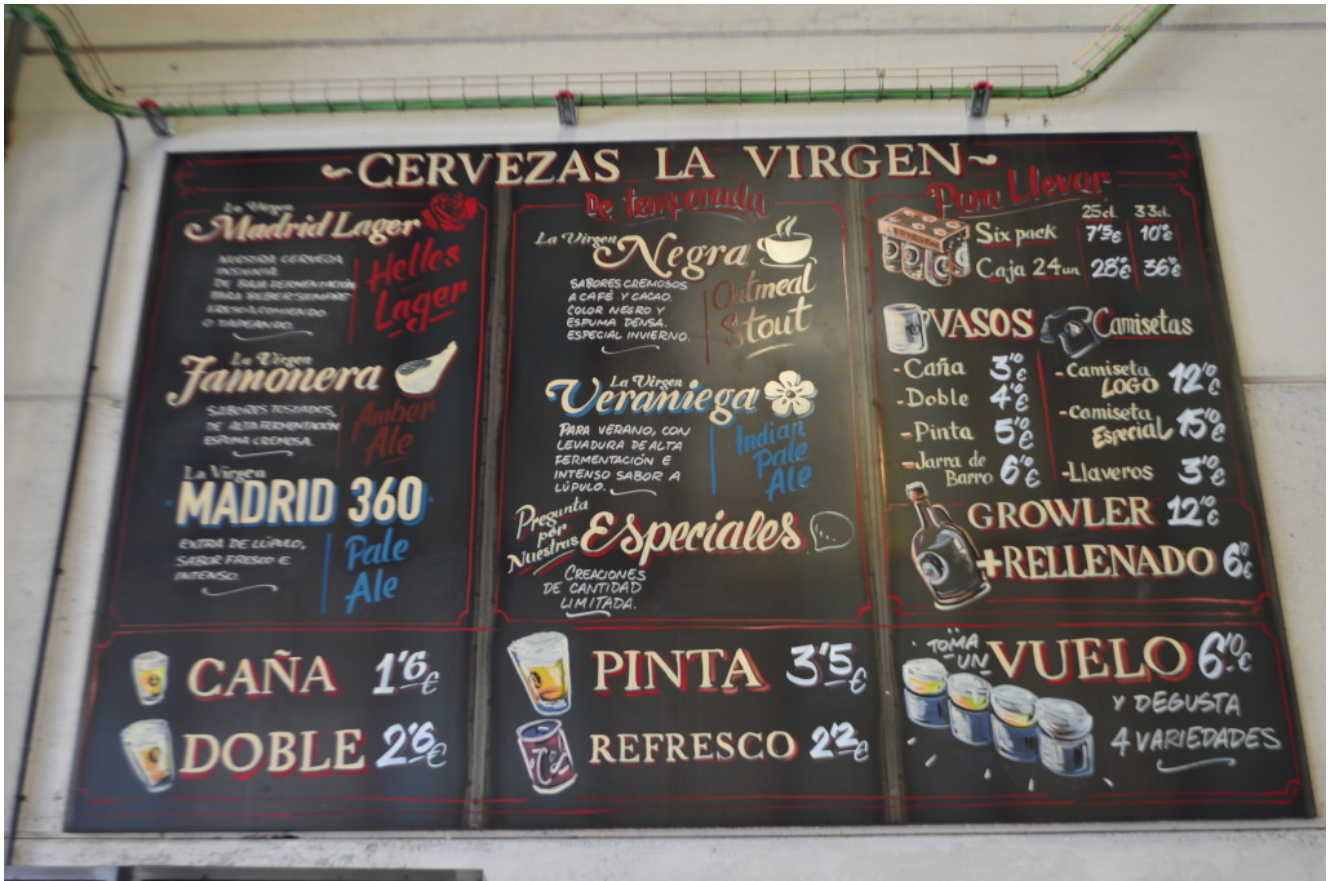 ~CERVEZAS LA VIRGEN~
La Virgen
Madrid Lager
NUESTRA CERVEZA
INSIGNIA.
DE BAJA FERMENTACIÓN
PARA BEBER SIEMPRE
FRESCA, COMIENDO
O TAPEANDO.
Helles
Lager
La Virgen
Jamonera
SABORES TOSTADOS,
DE ALTA FERMENTACIÓN
ESPUMA CREMOSA.
Amber
Ale
La Virgen
MADRID 360
EXTRA DE LÚPULO,
SABOR FRESCO E
INTENSO.
Pale
Ale
De temporada
La Virgen
Negra
SABORES CREMOSOS
A CAFÉ Y CACAO.
COLOR NEGRO Y
ESPUMA DENSA.
ESPECIAL INVIERNO.
Oatmeal
Stout
La Virgen
Veraniega
PARA VERANO, CON
LEVADURA DE ALTA
FERMENTACIÓN E
INTENSO SABOR A
LÚPULO.
Indian
Pale
Ale
Pregunta
por
Nuestras
Especiales
CREACIONES
DE CANTIDAD
LIMITADA.
Para Llevar
25cl. 33cl.
Six pack 7'5€ 10'€
Caja 24un. 28'€ 36'€
VASOS
-Caña 3'0€
-Doble 4'0€
-Pinta 5'0€
-Jarra de
Barro 6'0€
Camisetas
-Camiseta
LOGO 12'0€
-Camiseta
Especial 15'0€
-Llaveros 3'0€
GROWLER 12'0€
+RELLENADO 6'0€
CAÑA 1'6€
DOBLE 2'6€
PINTA 3'5€
REFRESCO 2'2€
TOMA
-UN VUELO 6'0€
Y DEGUSTA
4 VARIEDADES